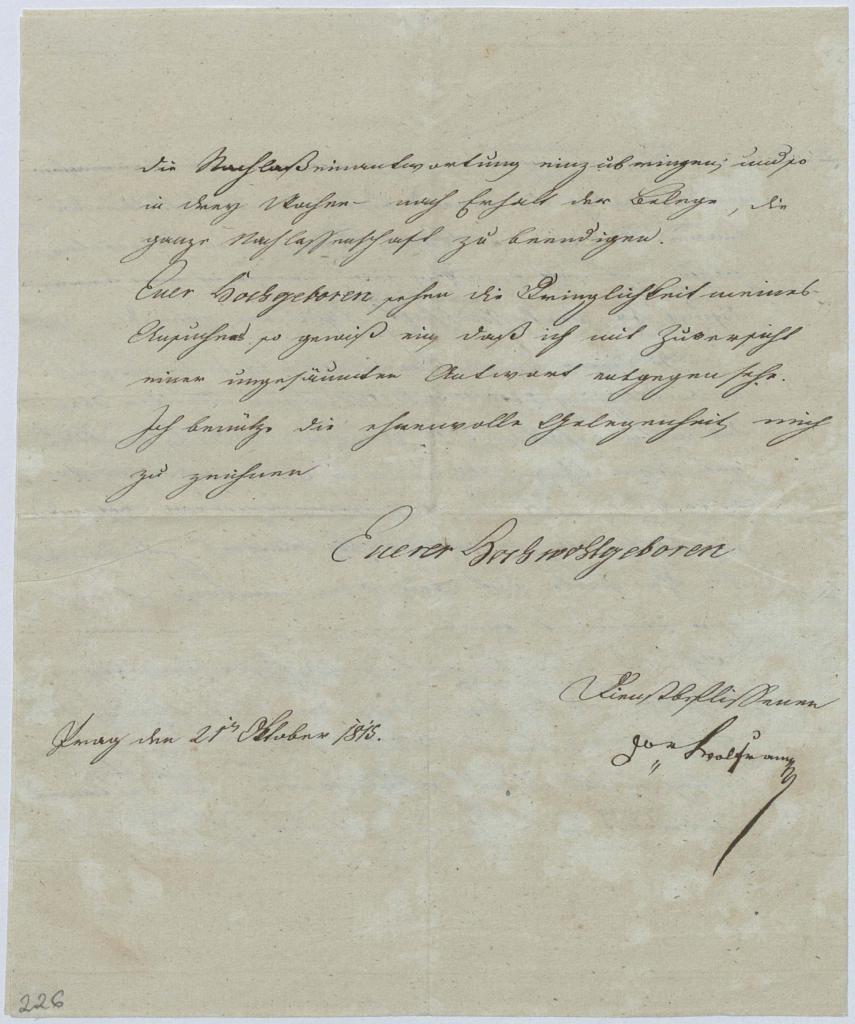 die Nachlaßeinantwortung einzubringen, und so
in drey Wochen – nach Erhalt der Belege, die
ganze Nachlassenschaft zu beendigen.
Euer Hochgeboren sehen die Dringlichkeit meines
Ansuchens so gewiß ein, daß ich mit Zuversicht
einer ungesäumten Antwort entgegen sehe.
Ich benütze die ehrenvolle Gelegenheit, mich
zu zeichnen
Euerer Hochwohlgeboren
Dienstbeflissenen
Prag den 21ten Oktober 1815.
Jos
226